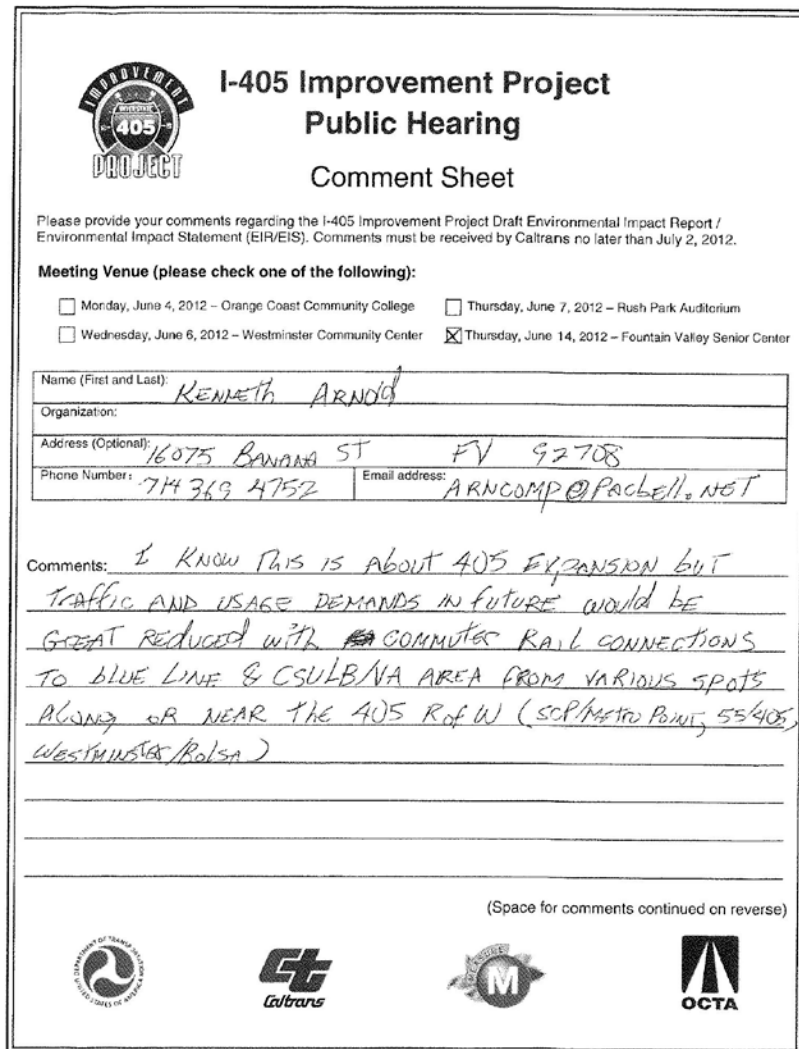 IMPROVEMENT
INTERSTATE
405
PROJECT
I-405 Improvement Project
Public Hearing
Comment Sheet
Please provide your comments regarding the I-405 Improvement Project Draft Environmental Impact Report /
Environmental Impact Statement (EIR/EIS). Comments must be received by Caltrans no later than July 2, 2012.
Meeting Venue (please check one of the following):
Monday, June 4, 2012 – Orange Coast Community College
Thursday, June 7, 2012 – Rush Park Auditorium
Wednesday, June 6, 2012 – Westminster Community Center
Thursday, June 14, 2012 – Fountain Valley Senior Center
Name (First and Last): KENNETH ARNOLD
Organization:
Address (Optional): 16075 BANANA ST FV 92708
Phone Number: 714 369 4752
Email address: ARNCOMP@PACBELL.NET
Comments: I KNOW THIS IS ABOUT 405 EXPANSION BUT
TRAFFIC AND USAGE DEMANDS IN FUTURE WOULD BE
GREAT REDUCED WITH COMMUTER RAIL CONNECTIONS
TO BLUE LINE & CSULB/VA AREA FROM VARIOUS SPOTS
ALONG OR NEAR THE 405 R of W (SCP/METRO POINT, 55/405,
WESTMINSTER/BOLSA)
(Space for comments continued on reverse)
DEPARTMENT OF TRANSPORTATION
UNITED STATES OF AMERICA
Ct
Caltrans
MEASURE
M
OCTA